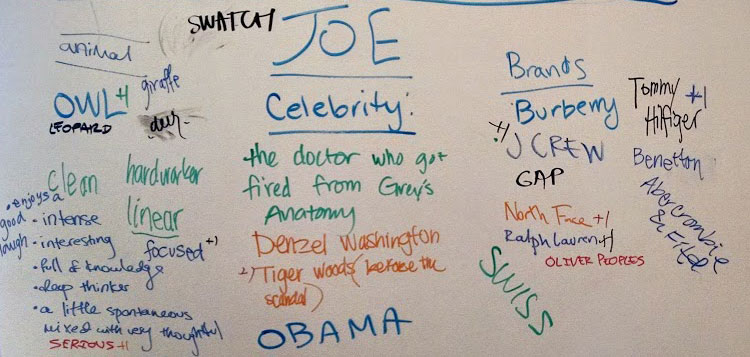 SWATCH
JOE
animal
giraffe
OWL +1
LEOPARD
deer
clean
hardworker
linear
focused +1
• enjoys a
good
laugh
• intense
• interesting
• full of knowledge
• deep thinker
• a little spontaneous
mixed with very thoughtful
SERIOUS +1
Celebrity:
the doctor who got
fired from Grey's
Anatomy
Denzel Washington
+1 Tiger Woods (before the
scandal)
OBAMA
Brands
Burberry
+1 J CREW
GAP
North Face +1
Ralph Lauren +1
OLIVER PEOPLES
SWISS
Tommy +1
Hilfiger
Benetton
Abercrombie
& Fitch